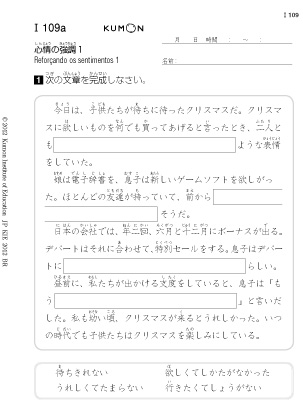 I 109
I 109a
KUMON
月 日 時間 : ～ :
しんじょう きょうちょう
心情の強調 1
Reforçando os sentimentos 1
名前:
1 次の文章を完成しなさい。
今日は、子どもたちが待ちに待ったクリスマスだ。クリスマ
スに欲しいものを何でも買ってあげると言ったとき、二人と
も ような表情
をしていた。
娘は電子辞書を、息子は新しいゲームソフトを欲しがっ
た。ほとんどの友達が持っていて、前から
そうだ。
日本の会社では、年二回、六月と十二月にボーナスが出る。
デパートはそれに合わせて、特別セールをする。息子はデパー
トに らしい。
昼前に、私たちが出かける支度をしていると、息子は「も
う 」と言いだ
した。私も幼い頃、クリスマスが来るとうれしかった。いつ
の時代でも子供たちはクリスマスを楽しみにしている。
待ちきれない 欲しくてしかたがなかった
うれしくてたまらない 行きたくてしょうがない
© 2012 Kumon Institute of Education JP KIE 2012 BR